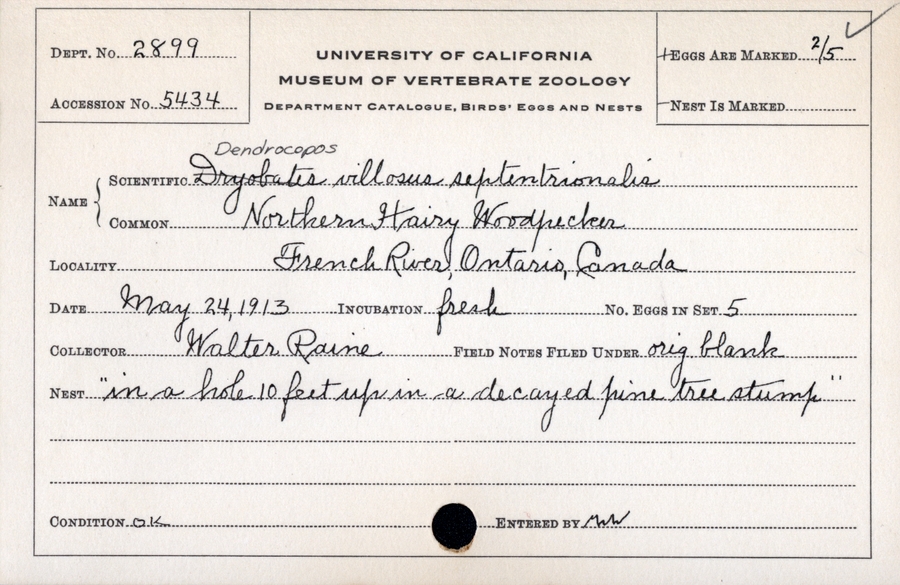 Dept. No. 2899
Accession No. 5434
UNIVERSITY OF CALIFORNIA
MUSEUM OF VERTEBRATE ZOOLOGY
Department Catalogue, Birds' Eggs and Nests
Eggs Are Marked 2/5
Nest Is Marked
Dendrocopos
Name
Scientific Dryobates villosus septentrionalis
Common Northern Hairy Woodpecker
Locality French River, Ontario, Canada
Date May 24, 1913 Incubation fresh No. Eggs in Set 5
Collector Walter Raine Field Notes Filed Under orig blank
Nest "in a hole 10 feet up in a decayed pine tree stump"
Condition OK Entered by